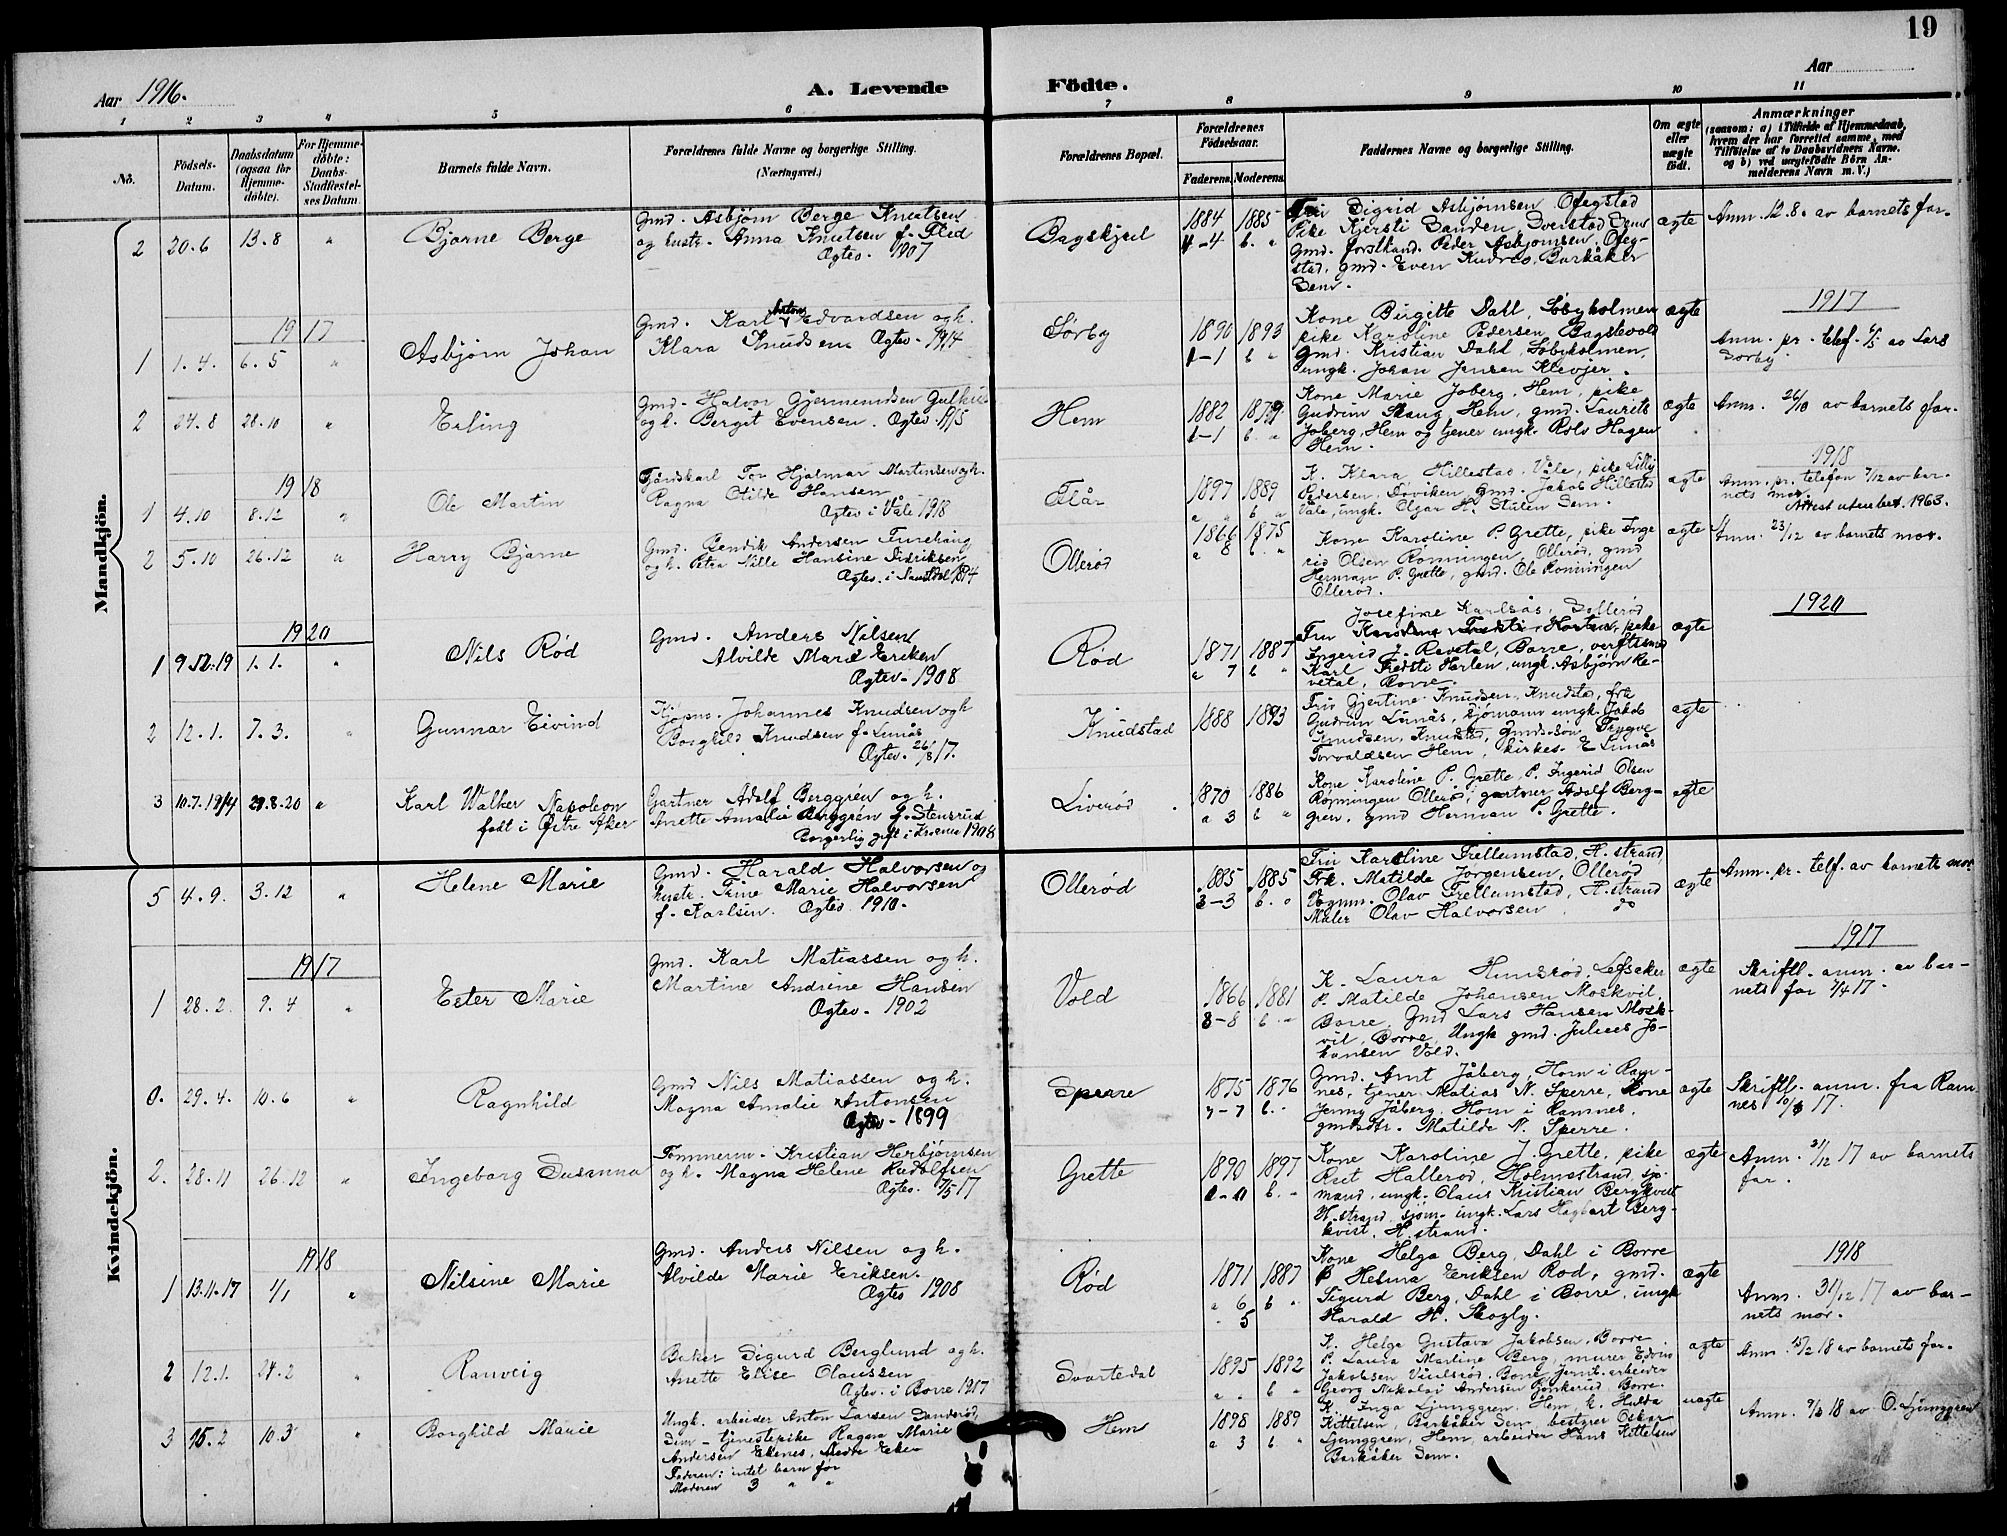 19
Aar 1916.
A. Levende Födte.
Aar
1 2 3 4 5 6 7 8 9 10 11
No.
Födsels-Datum.
Daabsdatum (ogsaa for Hjemme-döbte).
For Hjemme-döbte: Daabs-Stadfæstel-ses Datum.
Barnets fulde Navn.
Forældrenes fulde Navne og borgerlige Stilling. (Næringsvei.)
Forældrenes Bopæl.
Forældrenes Födselsaar.
Faderens. Moderens.
Faddernes Navne og borgerlige Stilling.
Om ægte eller uægte födt.
Anmærkninger
(saasom: a) i Tilfælde af Hjemmedaab, hvem der har forrettet samme, med Tilföielse af to Daabsvidners Navne, og b) ved uægtefödte Börn An-melderens Navn m. V.)
Mandkjön.
2 20.6 13.8 " Bjarne Berge
Gmd. Asbjørn Berge Knutsen
og hustr. Anna Knutsen f. Fled
Ægtev. 1907
Bagskjed
1884 1885
4-4 b. "
Fru Sigrid Asbjørnsen Ofegstad
Pike Kjersti Sanden,
Gmd. forstkand. Peder Asbjørnsen, Ofeg-
stad, gmd. Even Barkåker
Sem.
ægte
Anm. 12.8. av barnets far.
1917
1 1.4. 6.5 " Asbjørn Johan
Gmd. Karl Anton Edvardsen og h.
Klara Knudsen Ægtev. 1914
Sørby
1890 1893
1-1 b "
Kone Birgitte Dahl, Løbyholmen
pike Karoline Pedersen Bagslevold
Gmd. Kristian Dahl, Løbyholmen,
ungk. Johan Jensen Klevjer.
ægte
1917
Anm. pr. telef. av Lars
Sørby.
2 24.8 28.10 " Erling
Gmd. Halvor Gjermundsen
og h. Bergit Evensen. Ægtev. 1915
Hem
1882 1879
1-1 b "
Kone Marie Joberg, Hem, pike
Gudrun Skaug, Hem, gmd. Laurits
Joberg, Hem og tjener ungk. Rolv Hagen
Hem.
ægte
Anm. 26/10 av barnets far.
1918
1 4.10 8.12 " Ole Martin
Hjalmar Martinsen og h.
Ragna Otilde Hansen
Ægtev i Våle 1918
Flår
1897 1889
" " b "
K. Klara Hillestad, Våle, pike Lilly
Pedersen, Döviken, gmd. Jakob Hillestad
Våle, ungk. Olgar H. Stulen Sem.
ægte
1918
Anm. pr. telefon 7/12 av bar-
nets mor.
Attest utenbet. 1963.
2 5.10 26.12 " Harry Bjarne
Gmd. Bendik Andersen
og h. Petra Nille Hansine Didriksen
Ægtev. i 1894
Ollerød
1866 1875
" 8 b. "
Kone Karoline P. Grette, pike Inge
rid Olsen Rønningen, Ollerød, gmd
Herman P. Grette, gmd. Ole Rønningen
Ollerød.
ægte
Anm. 23/12 av barnets mor.
1920
1 9.12.19 1.1. " Nils Rød
Gmd. Anders Nilsen
Alvilde Marie Eriksen
Ægtev. 1908
Rød
1871 1887
" 7 b "
Josefine Karlsås, Sollerød
Fru Horten, pike
Ingerid J. Revetal, Borre,
Karl Horten, ungk. Asbjørn Re-
vetal, Borre.
ægte
1920
2 12.1. 7.3. " Gunnar Eivind
Kjøpm. Johannes Knudsen og h
Borghild Knudsen f. Linås
Ægtev. 26/8 17.
Knudstad
1888 1893
Fru Gjertine Knudsen, Knudstad, frk
Gudrun Linås, sjømann ungk. Jakob
Knudsen, Knudstad, gmds søn Trygve
Torvaldsen Hem, kirkes. E Linås
ægte
3 10.7.1914 29.8.20 " Karl Walker Napoleon
født i Østre Aker
Gartner Adolf Berggrén og h.
Anette Amalie Berggrén f. Stensrud
Borgerlig gift i Kr.ania 1908
Liverød
1870 1886
" 3 b "
Kone Karoline P. Grette, P. Ingerid Olsen
Rønningen Ollerød, gartner Adolf Berg-
gren, gmd Herman P. Grette.
ægte
Kvindekjön.
5 4.9. 3.12 " Helene Marie
Gmd. Harald Halvorsen og
hustr. Trine Marie Halvorsen
f. Karlsen. Ægtev. 1910.
Ollerød
1885 1885
3-3 b. "
Fru Karoline Frellumstad, H.strand
Frk. Matilde Jørgensen, Ollerød
Vognm. Olav Frellumstad, H.strand
Maler Olav Halvorsen do
ægte
Anm. pr. telf. av barnets mor
1917
1 28.2. 9.4 " Ester Marie
Gmd. Karl Matiassen og h.
Martine Andrine Hansen
Ægtev. 1902
Vold
1866 1881
8-8 b. "
K. Laura Himsrød, Lefsaker
P. Matilde Johansen Moskvil,
Borre, Gmd Lars Hansen Mosk-
vil, Borre, Ungk gmd. Julius Jo-
hansen Vold.
ægte
1917
Skriftl. anm. av bar-
nets far 7/4 17.
0. 29.4. 10.6 " Ragnhild
Gmd Nils Matiassen og h.
Magna Amalie Antonsen
Ægtev. 1899
Sperre
1875 1876
7-7 b. "
Gmd. Arnt Jåberg, Hom i Ram-
nes, tjener Matias N. Sperre, Kone
Jenny Jåberg, Hom i Ramnes,
gmdsdtr. Matilde N. Sperre.
ægte
Skriftl. anm. fra Ram
nes 17.
2. 28.11 26.12 " Ingeborg Susanna
Tömmerm. Kristian Herbjørnsen
og h. Magna Helene Rudolfsen
Ægtev. 17
Grette
1890 1897
b. "
Kone Karoline J. Grette, pike
Rut Hallerød, Holmestrand, sjö-
mand, ungk. Olaus Kristian Bergkvist
H.strand, sjøm. ungk. Lars Hagbart Berg-
kvist, H.strand.
ægte
Anm. 21/12 17 av barnets
far.
1918
1 13.11.17 1/1 " Nilsine Marie
Gmd. Anders Nilsen og h.
Alvilde Marie Eriksen.
Ægtev 1908
Rød
1871 1887
" 6 b "
" 5
Kone Helga Berg, Dahl i Borre
P Helma Eriksen Rød, gmd.
Sigurd Berg, Dahl i Borre, ungk
Harald H. Skogly.
ægte
1918
Anm. 31/12 17 av bar-
nets mor.
2 12.1. 24.2 " Ranveig
Baker Sigurd Berglund og h.
Anette Elise Olaussen
Ægtev. i Borre 1917
Svartedal
1895 1892
" " b "
K. Helga Gustava Jakobsen, Borre
P. Laura Martine Berg, murer Edvin
Jakobsen Borre, jernb.arbeider
Georg Nikolai Andersen Borre.
ægte
Anm. 15/2 18 av barnets far.
3 15.2 10.3 " Borghild Marie
Ungk. arbeider Anton Larsen Sanderød,
Sem - tjenestepike Ragna Marie
Andersen Ekenes, Nedre Eker
Faderen: intet barn før
Moderen 3 " "
Hem
1898 1889
" 3 b "
K. Inga Ljunggren, Hem, k. Hulda
Kittelsen, Barkåker Sem, bestyrer Oskar
Ljunggren, Hem, arbeider Hans Kittelsen
Barkåker Sem.
uægte
Anm. 18 av O. Ljunggren